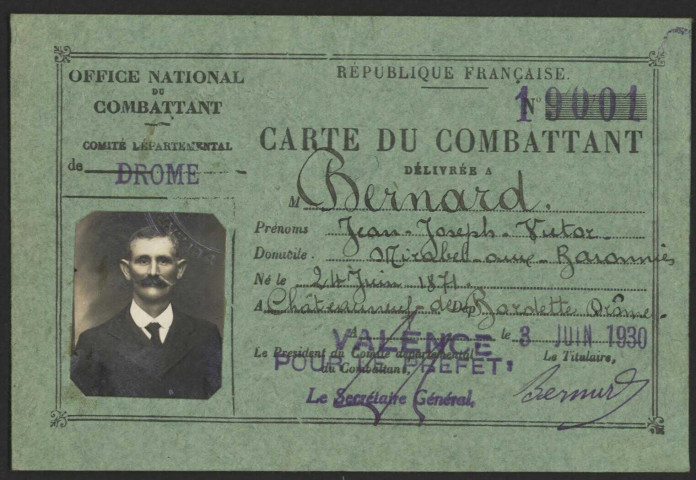 OFFICE NATIONAL
DU
COMBATTANT
COMITÉ DÉPARTEMENTAL
de DROME
RÉPUBLIQUE FRANÇAISE.
N° 19001
CARTE DU COMBATTANT
DÉLIVRÉE A
M Bernard.
Prénoms Jean-Joseph-Victor
Domicile. Mirabel-aux-Baronnies
Né le 24 Juin 1871.
A Châteauneuf-de-Bordette Dép Drôme.
A VALENCE le 3 JUIN 1930
Le Président du Comité départemental
du Combattant,
POUR LE PREFET:
Le Secrétaire Général,
Le Titulaire,
Bernard